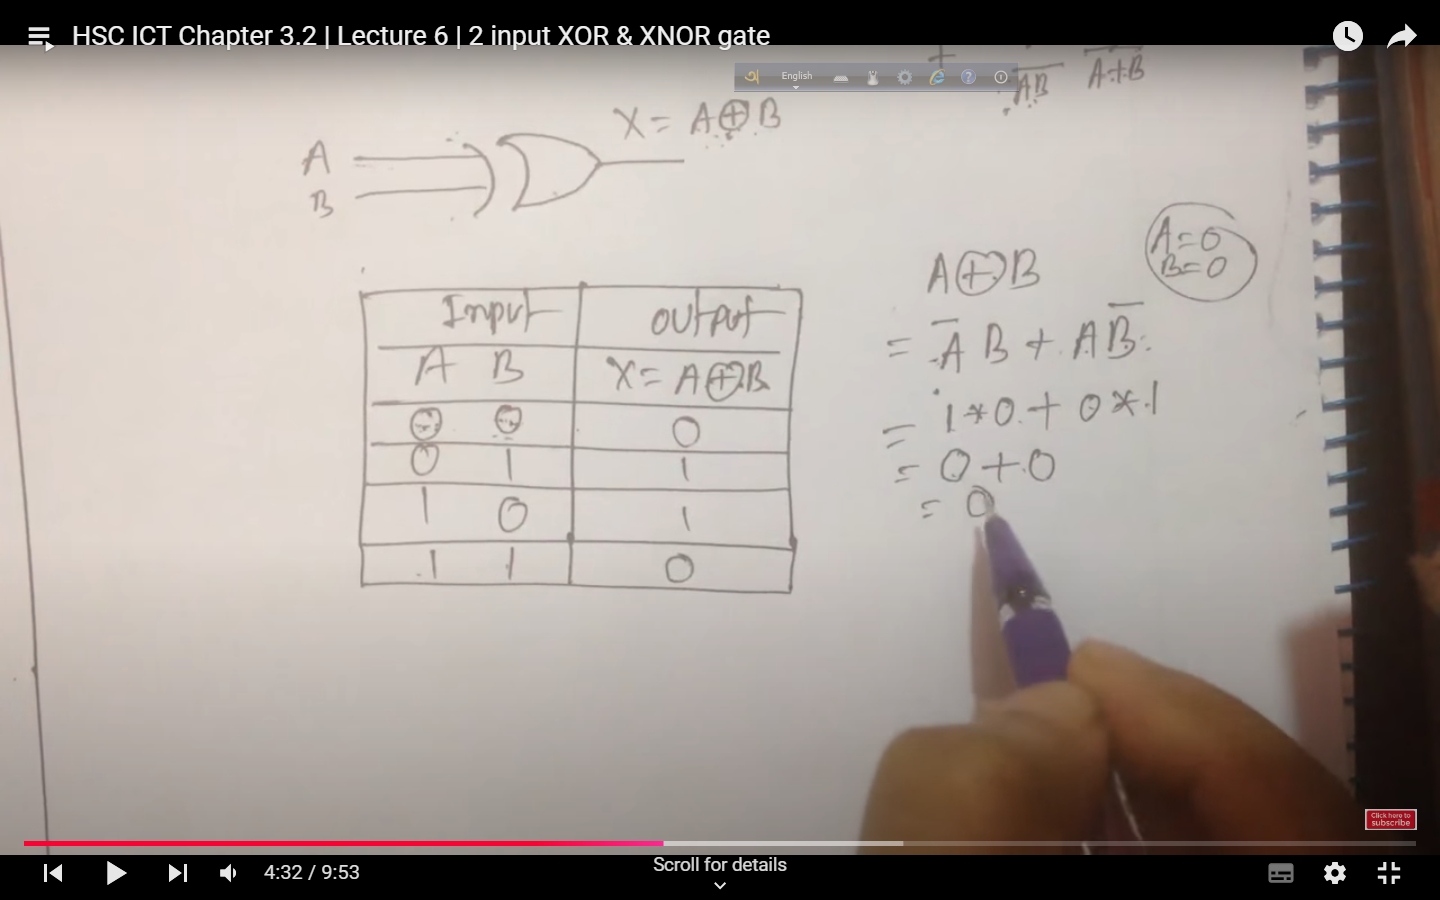 HSC ICT Chapter 3.2 | Lecture 6 | 2 input XOR & XNOR gate
English
+ A̅B̅ A̅+̅B̅
X = A⊕B
A
B
Input Output
A B X = A⊕B
0 0 0
0 1 1
1 0 1
1 1 0
A=0
B=0
A⊕B
= A̅ B + A B̅
= 1*0 + 0*1
= 0+0
= 0
Click here to
subscribe
4:32 / 9:53
Scroll for details